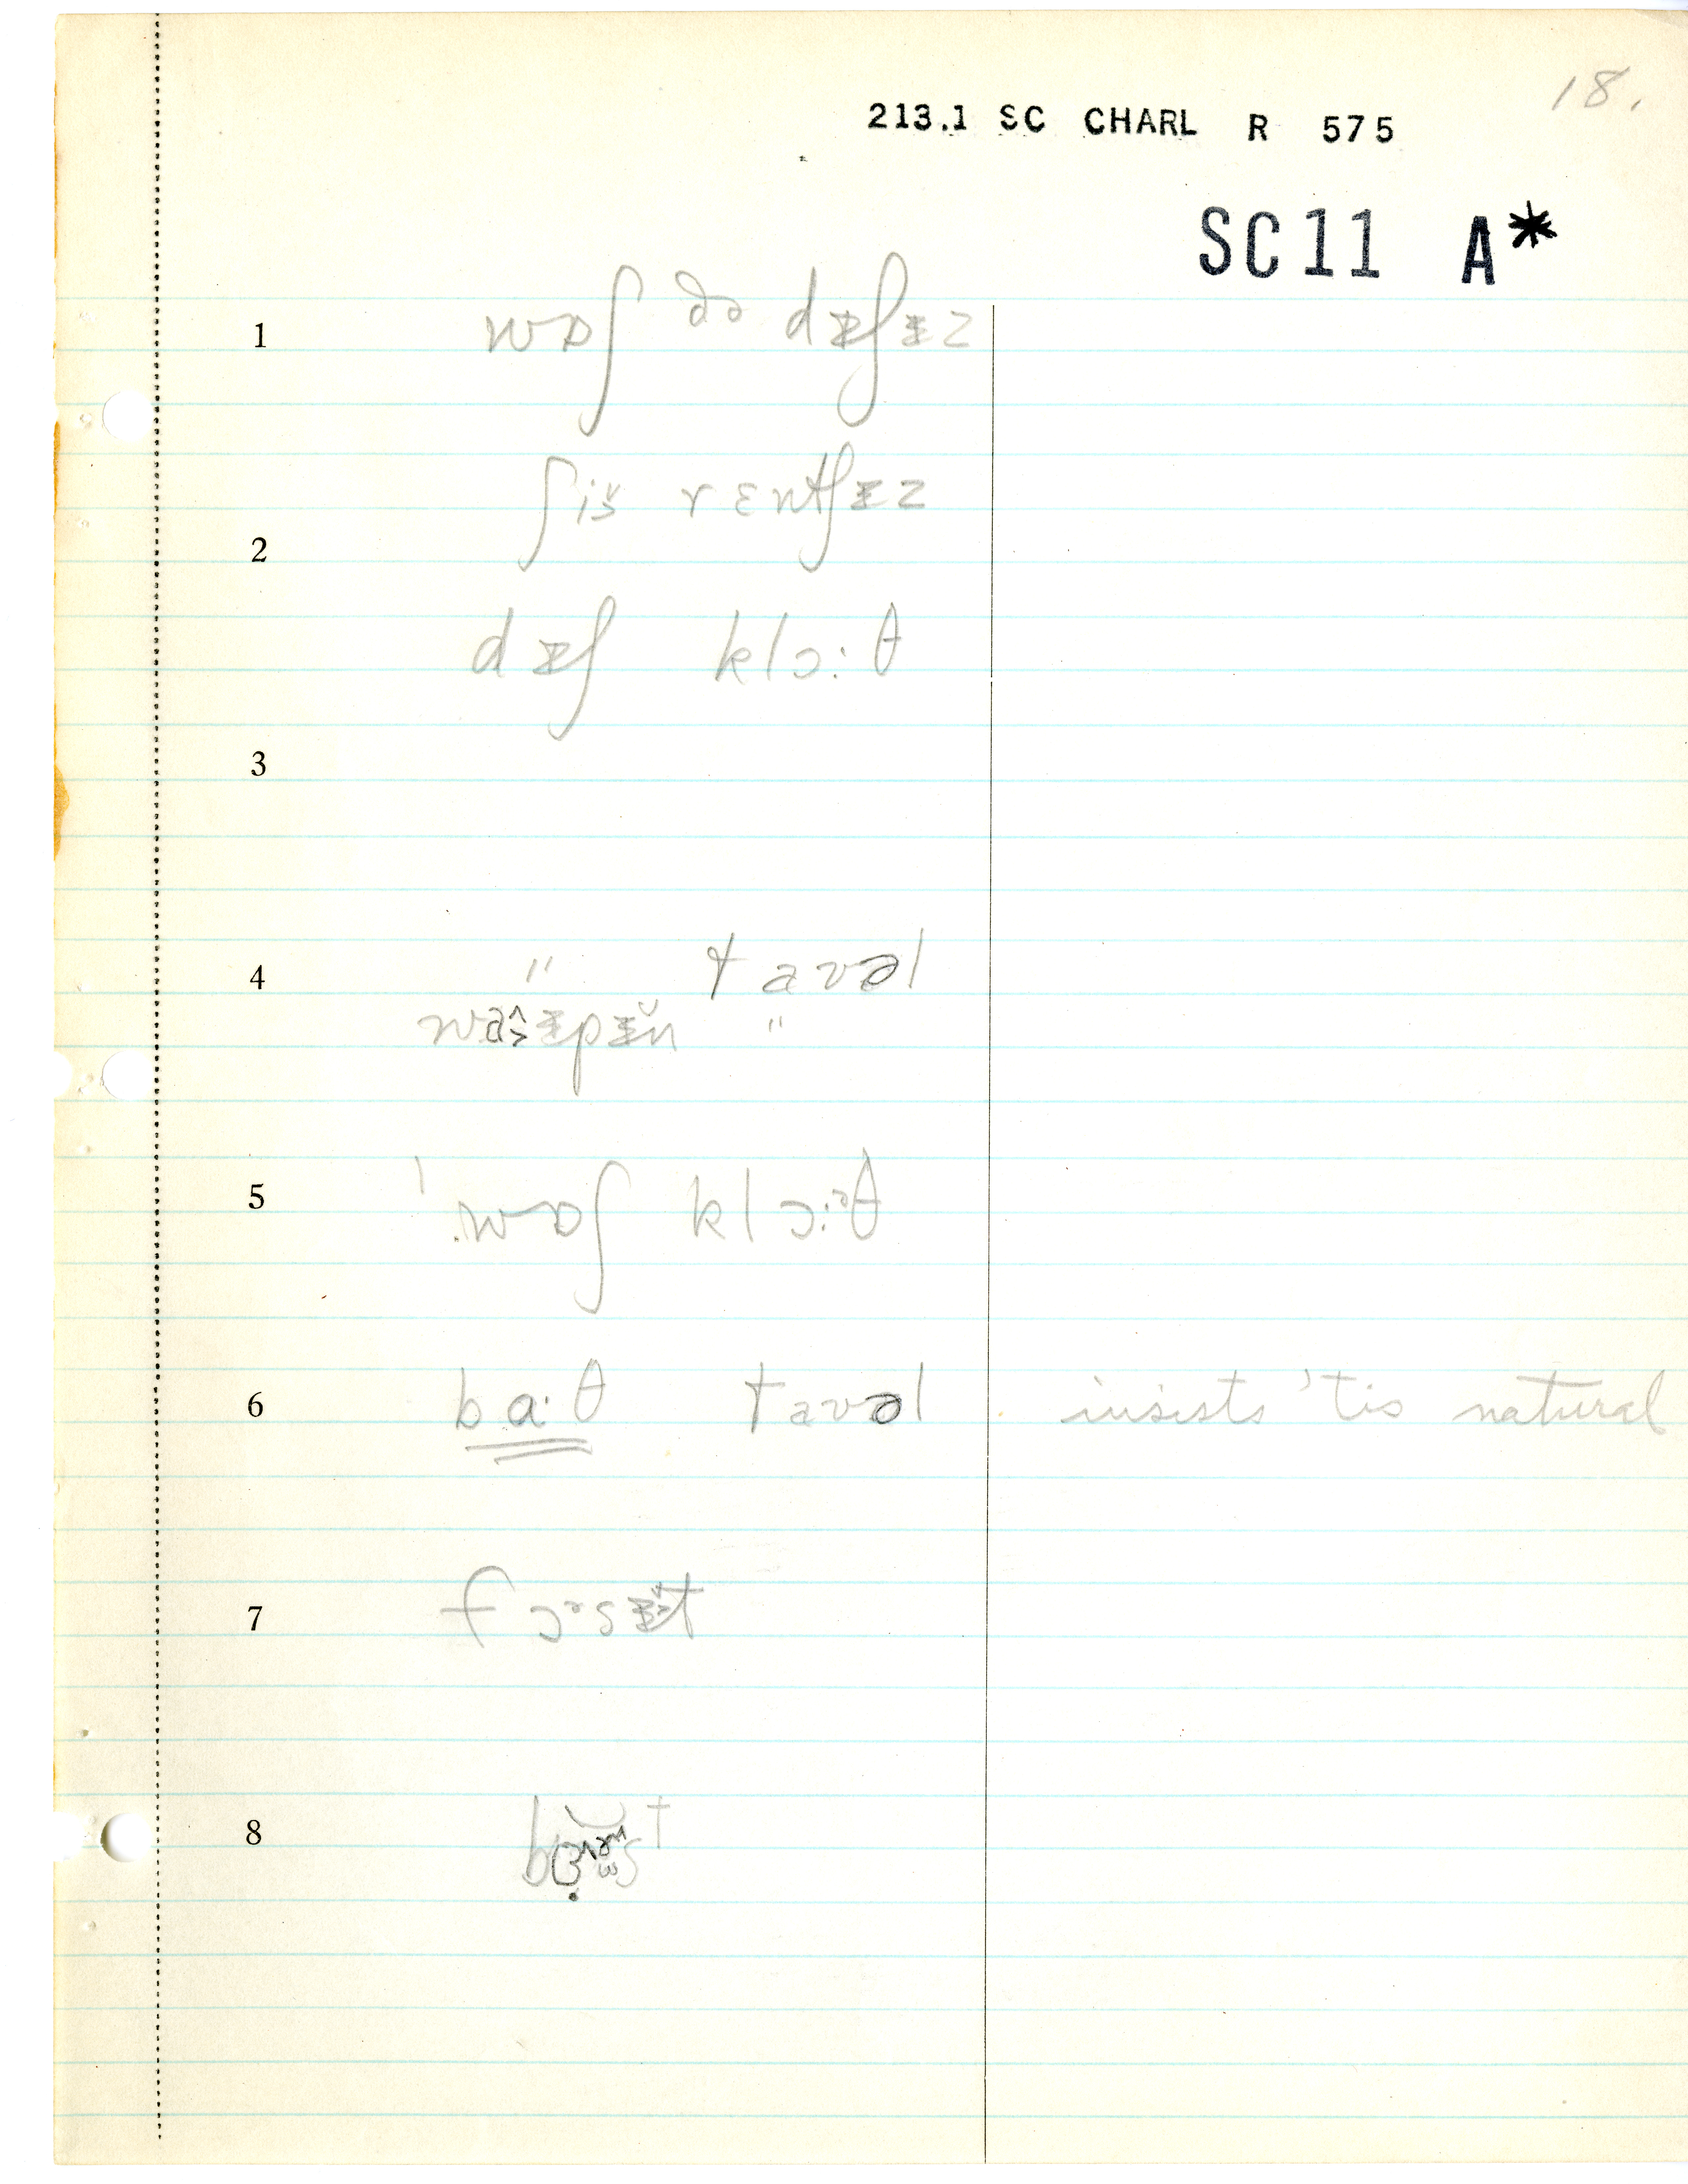 18.
213.1 SC CHARL R 575
SC11 A*
1 wɒʃ ðə dɪʃɪz
ʃiš rɛntʃɪz
2
dɪʃ klɔ:θ
3
4 " tavəl
"
5 ˈwɒʃ klɔ:ᵊθ
6 ba·θ tavəl insists 'tis natural
7 fɔᵊsɪ̆t
8